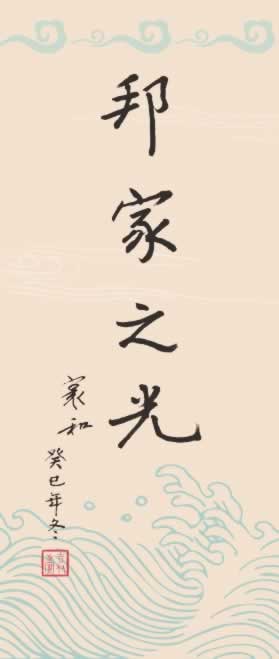 邦家之光
癸巳年冬